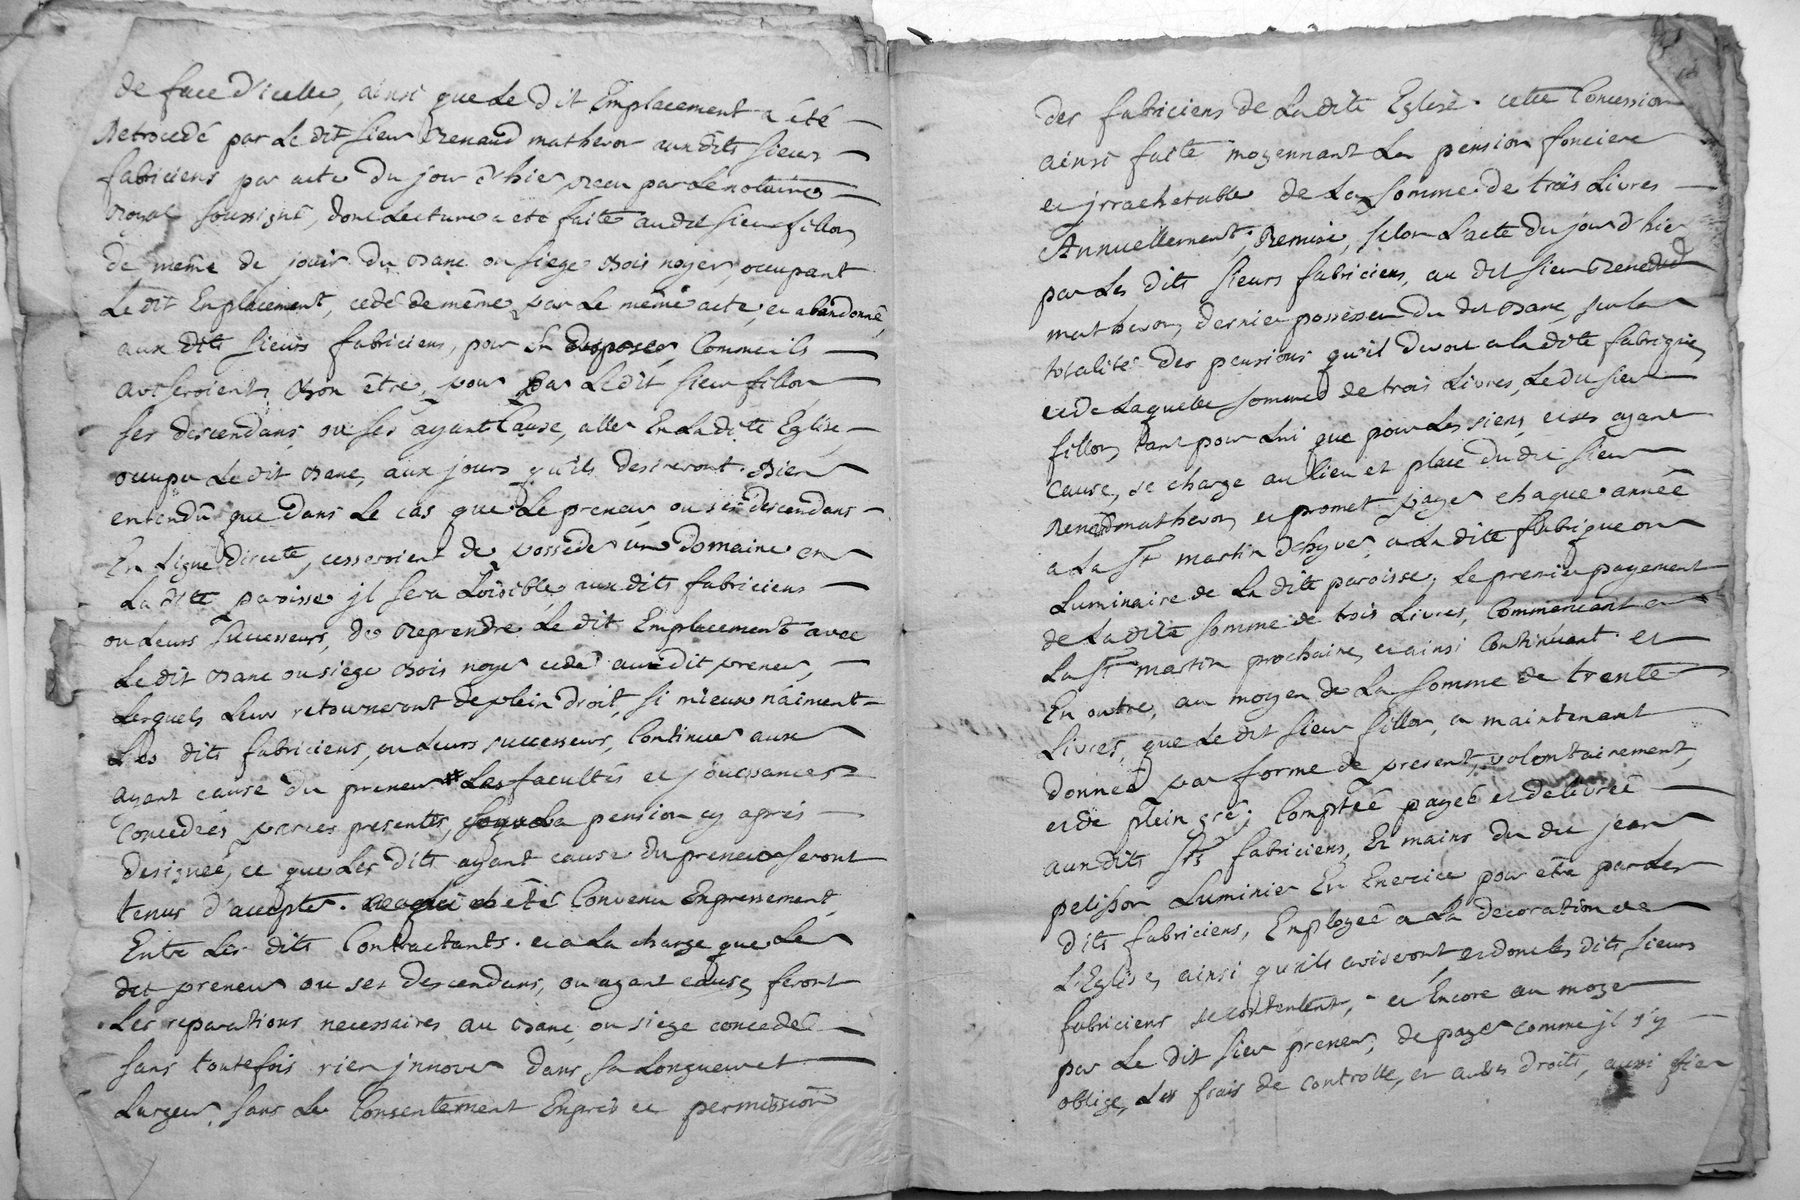 de face d'icelle, ainsi que le dit Emplacement a été
Retrocedé par le dit sieur Renaud mathevon aux dits sieurs
fabriciens par acte du jour d'hier recu par le notaire
Royal soussigné, dont lecture a eté faite au dit sieur fillon
de même de jouir du banc ou siege bois noyer occupant
Le dit Emplacement, cedé de même par le même acte, et abandonné
aux dits sieurs fabriciens, pour en disposer, Comme ils
aviseroient bon être, pour par Ledit sieur fillon
ses descendans ou ses ayant Cause, aller En la dite Eglise,
occuper Le dit banc, aux jours qu'ils desireront. Bien
entendû que dans le cas que le preneur, ou ses descendans
En Ligne directe, cesseroient de posséder un domaine en
La dite paroisse jl sera Loisible aux dits fabriciens
ou Leurs successeurs, de Reprendre Le dit Emplacement avec
Le dit banc ou siege bois noyer cedé audit preneur,
Lesquels Leur retourneront de plein droit, si mieux n'aiment
Les dits fabriciens, ou Leurs successeurs, Continuer aux
ayant cause du preneur # Les facultés et joüissances
concedées par ces presentes, la pension cy aprés
designée, ce que Les dits ayant cause du preneur seront
tenus d'accepter. été Convenu Expressement
Entre Les dits Contractants. et a La charge que Le
dit preneur ou ses descendans, ou ayant cause, feront
Les reparations necessaires au banc ou siege concedé
sans toutefois rien jnnover dans sa Longueur et
Largeur, sans Le Consentement Exprés et permission
des fabriciens de La dite Eglise. cette Concession
ainsi faite moyennant La pension fonciere
et jrrachetable de La somme de trois Livres
Annuellement, Remise, selon L'acte du jour d'hier
par Les dits sieurs fabriciens, au dit sieur Renaud
mathevon dernier possesseur du dit banc, sur la
totalité des pensions qu'il devoit a la dite fabrique
et de Laquelle somme de trois Livres, Le dit sieur
fillon tant pour Lui que pour Les siens et ses ayant
cause, se charge au lieu et place du dit sieur
Renaud mathevon et promet payer chaque année
a La St martin d'hyver, a La dite fabrique ou
Luminaire de La dite paroisse, Le premier payement
de La dite somme de trois Livres, Commencant a
La St martin prochaine, et ainsi Continuant. et
En outre, au moyen de La somme de trente
Livres, que Le dit sieur fillon a maintenant
donnée par forme de present, volontairement,
et de plein gré, Comptée payée et delivrée
aux dits Srs fabriciens, Es mains du dit jean
pelisson Luminier En Exercice pour être par Les
dits fabriciens, Employée a La decoration de
L'Eglise, ainsi qu'ils aviseront et dont les dits sieurs
fabriciens se contentent, et Encore au moyen
par Le dit sieur preneur, de payer comme jl s'y
oblige, Les frais de controlle, et autres droits, aussi bien